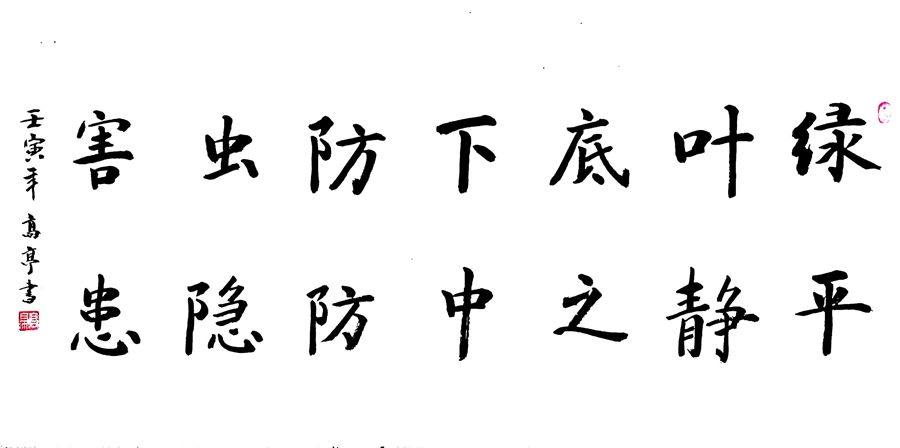 绿叶底下防虫害
平静之中防隐患
壬寅年高亭书